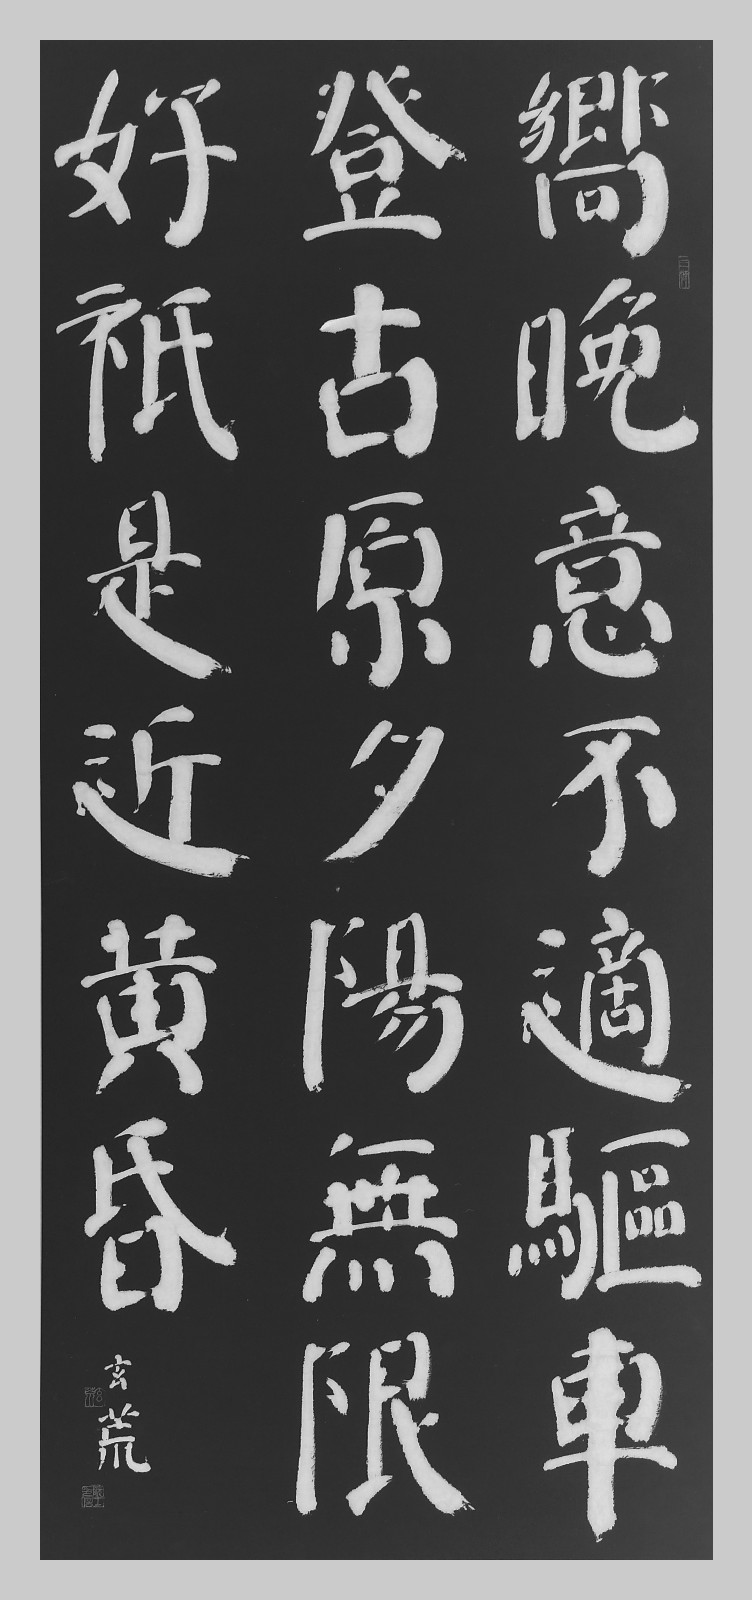 嚮晚意不適驅車
登古原夕陽無限
好祇是近黄昏
玄荒